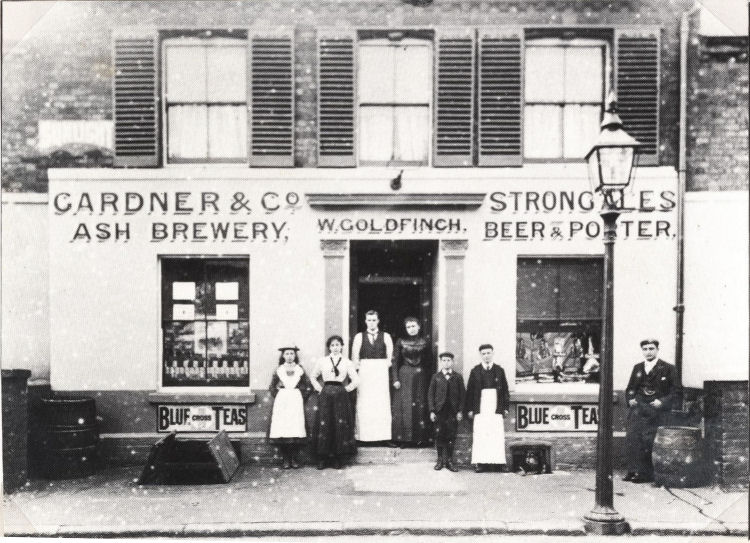 GARDNER & Co STRONG ALES
ASH BREWERY, W. GOLDFINCH. BEER & PORTER.
BLUE CROSS TEAS
BLUE CROSS TEAS